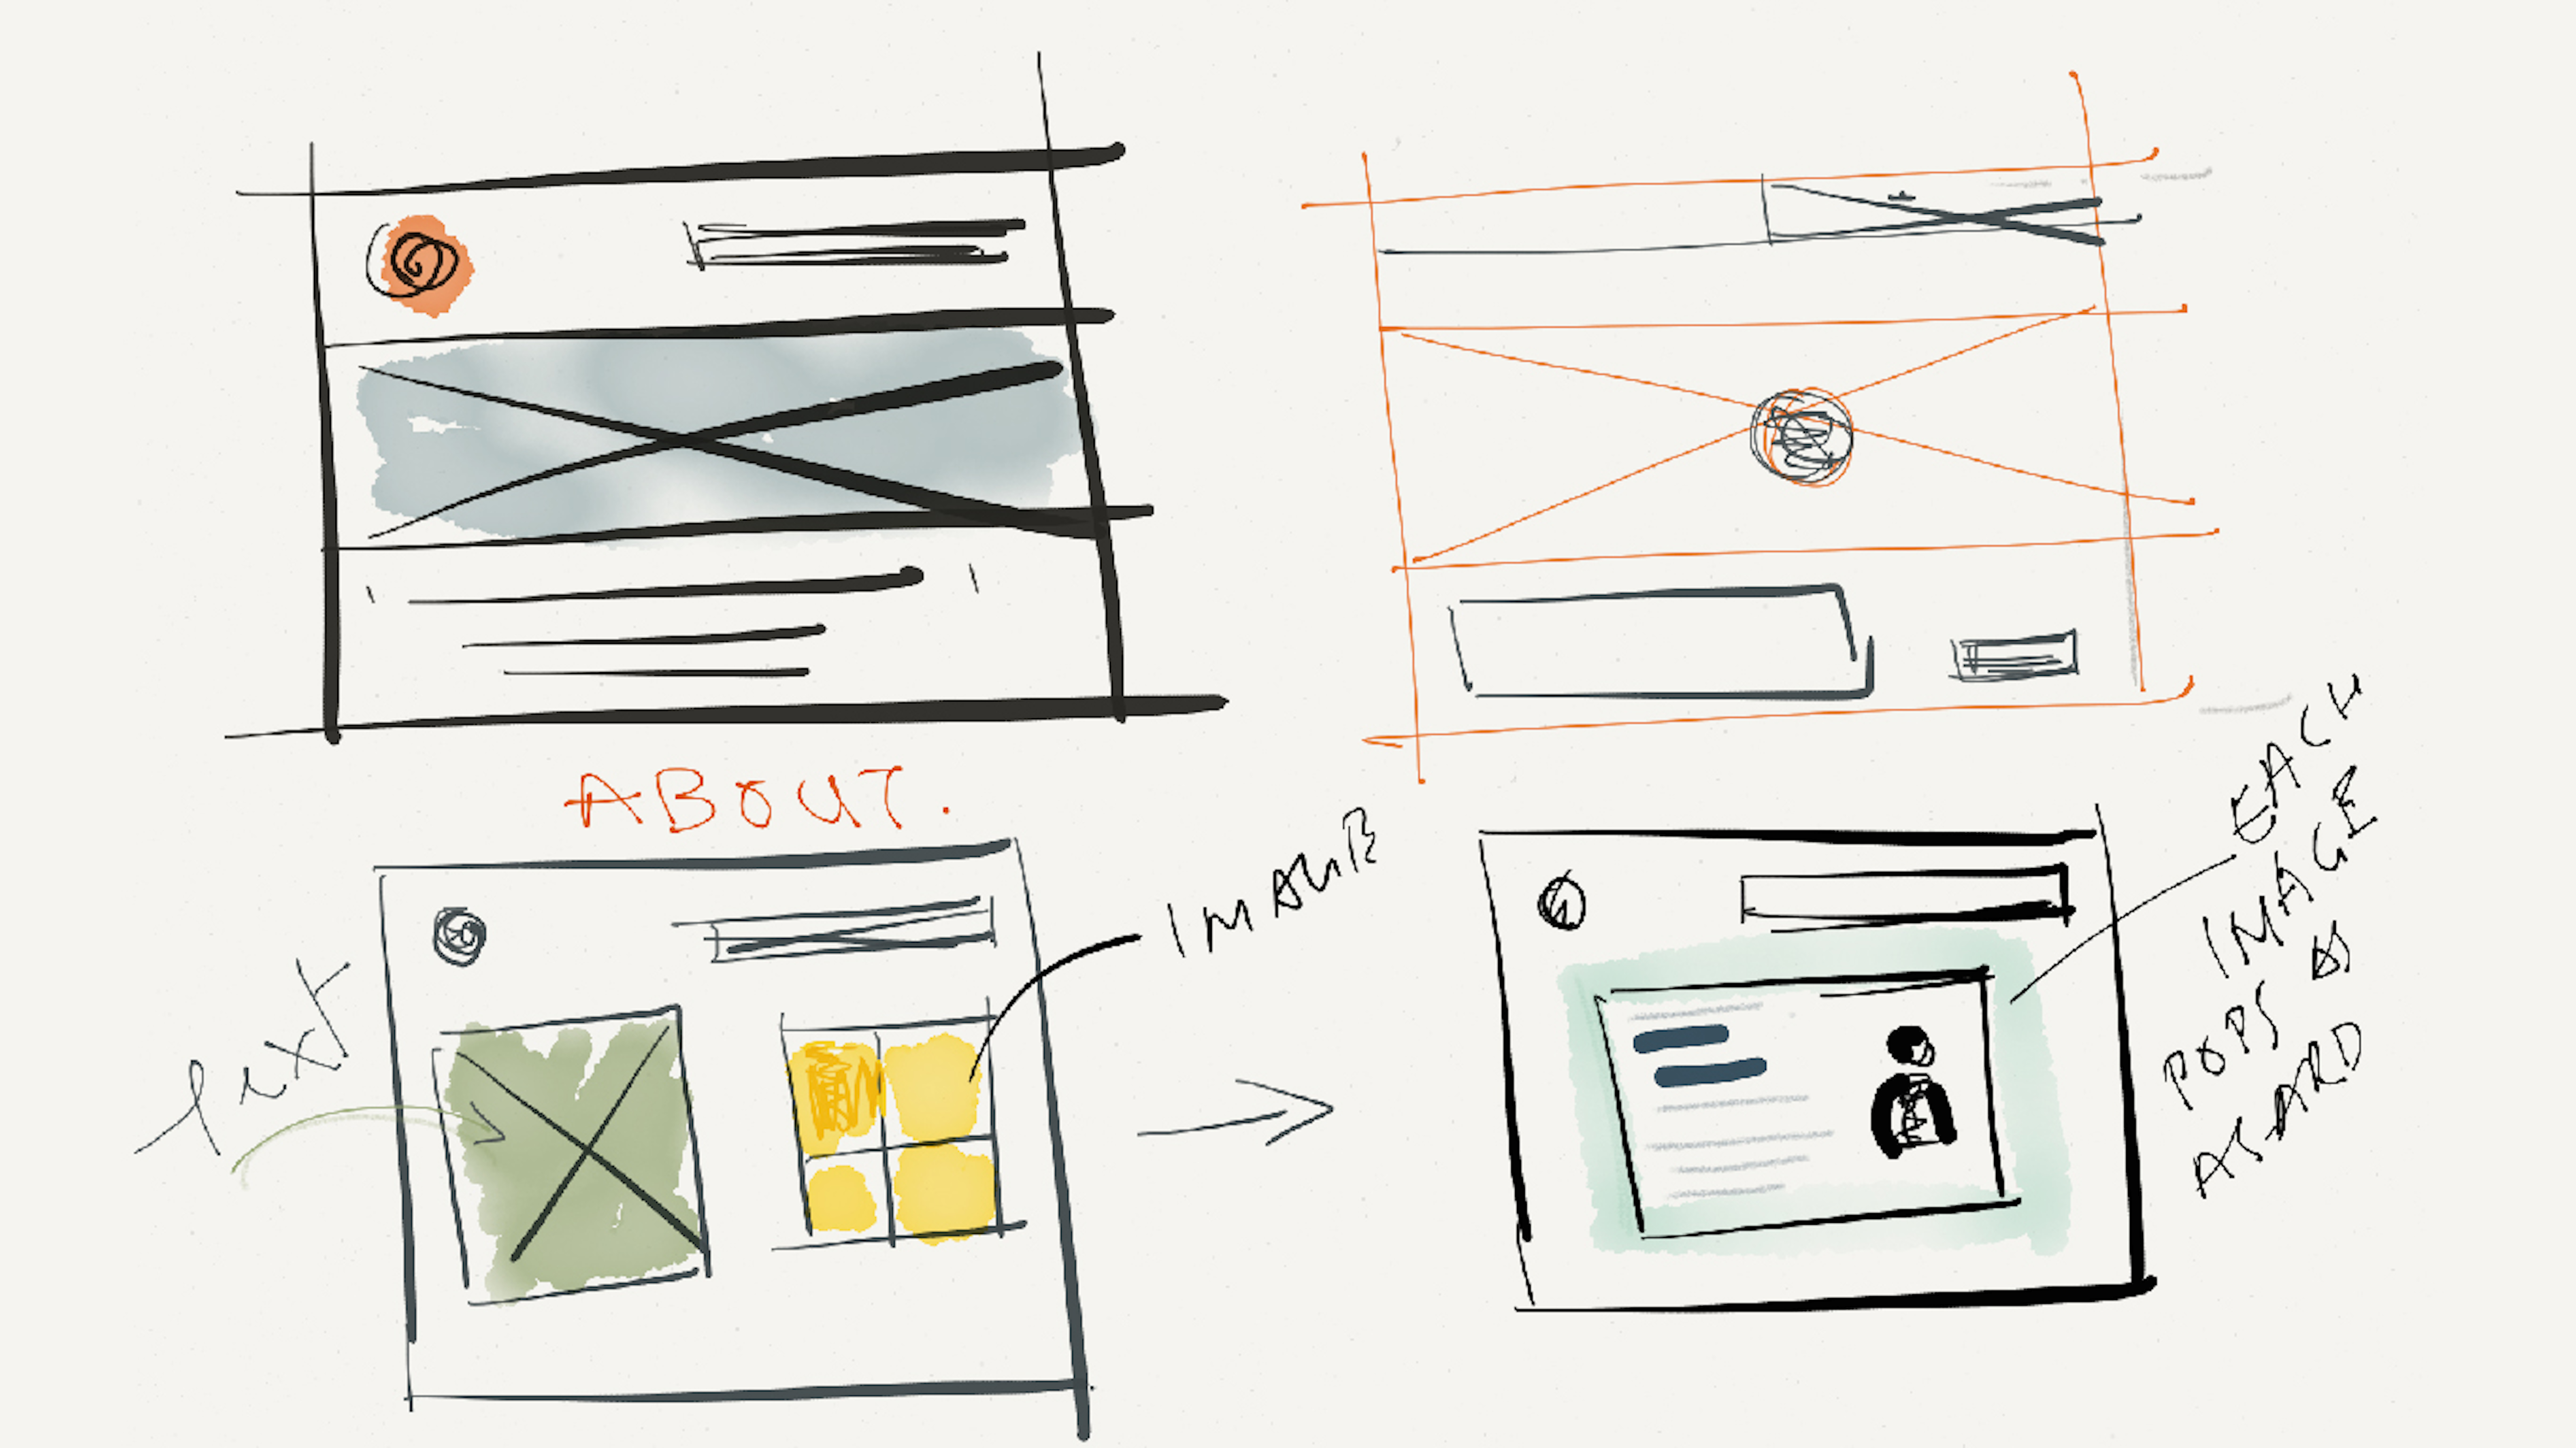 ABOUT.
text
IMAGE
EACH
IMAGE
POPS AS
A CARD